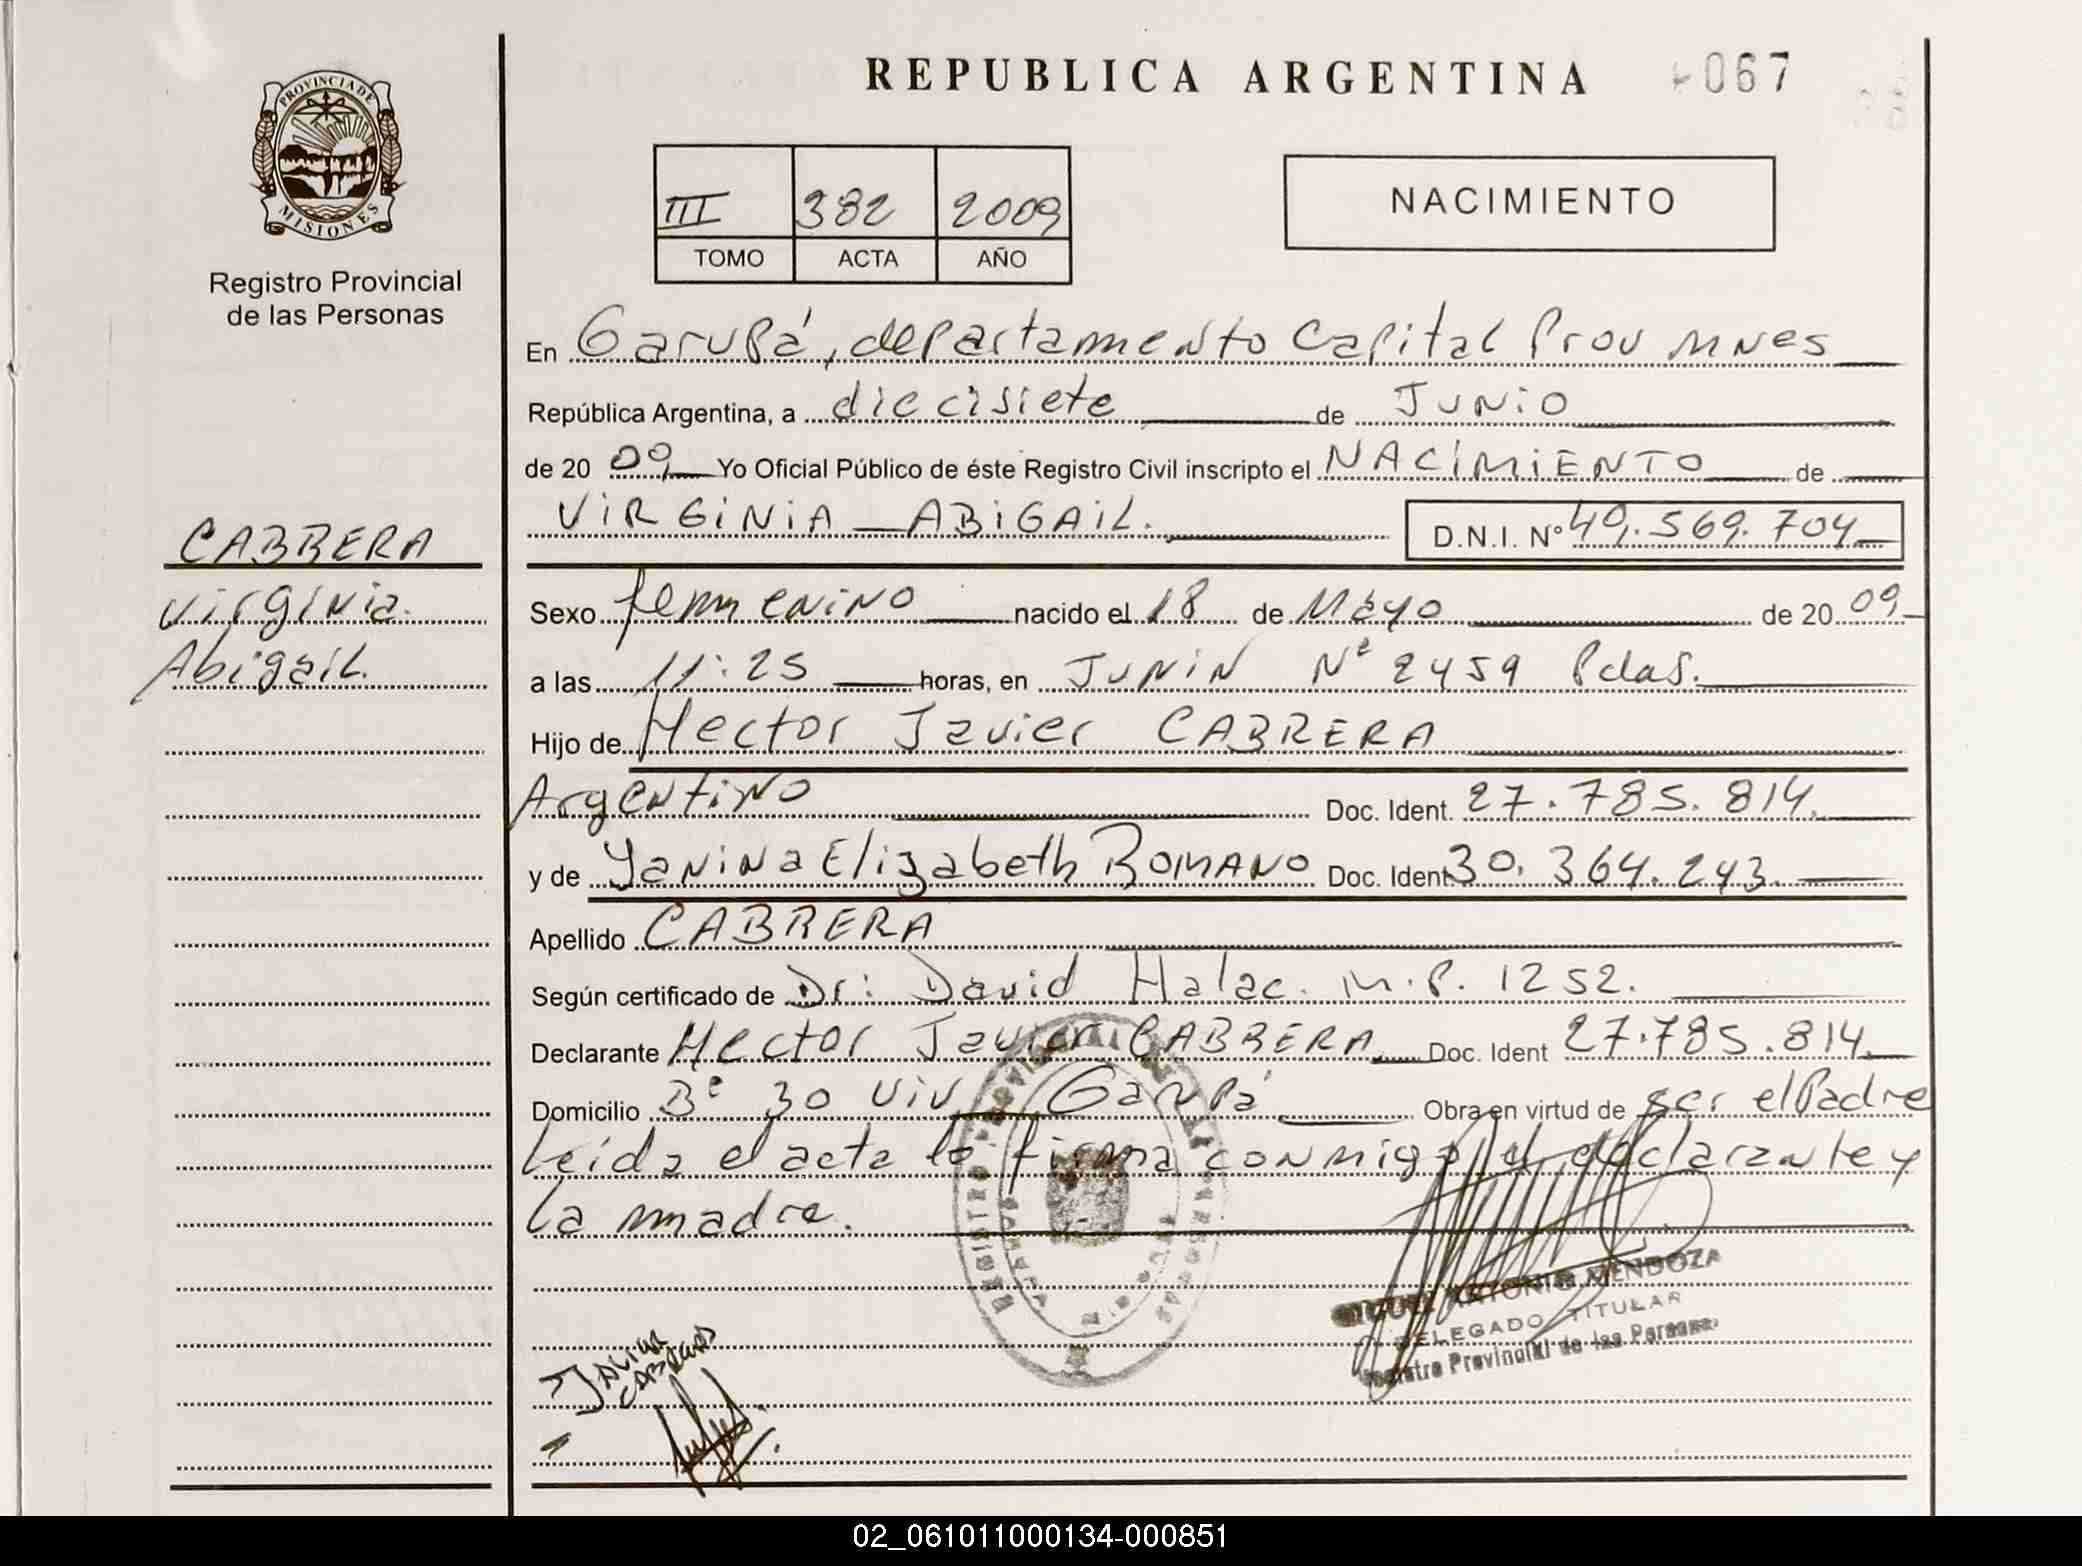 REPUBLICA ARGENTINA 067
PROVINCIA DE
MISIONES
Registro Provincial
de las Personas
III 382 2009
TOMO ACTA AÑO
NACIMIENTO
En Garupá, departamento Capital Prov Mnes
República Argentina, a diecisiete de Junio
de 20 09 Yo Oficial Público de éste Registro Civil inscripto el NACIMIENTO de
VIRGINIA ABIGAIL. D.N.I. Nº 49.569.704
CABRERA
Virginia.
Abigail.
Sexo femenino nacido el 18 de Mayo de 20 09
a las 11:25 horas, en JUNIN Nº 2459 Pdas.
Hijo de Hector Javier CABRERA
Argentino Doc. Ident. 27.785.814.
y de Yanina Elizabeth ROMANO Doc. Ident 30.364.243.
Apellido CABRERA
Según certificado de Dr: David Halac. M.P. 1252.
Declarante Hector Javier CABRERA Doc. Ident 27.785.814.
Domicilio Bº 30 Viv Garupá Obra en virtud de ser el Padre
Leida el acta la firma conmigo el declarante y
la madre.
ANTONIO MENDOZA
DELEGADO TITULAR
Registro Provincial de las Personas
02_061011000134-000851